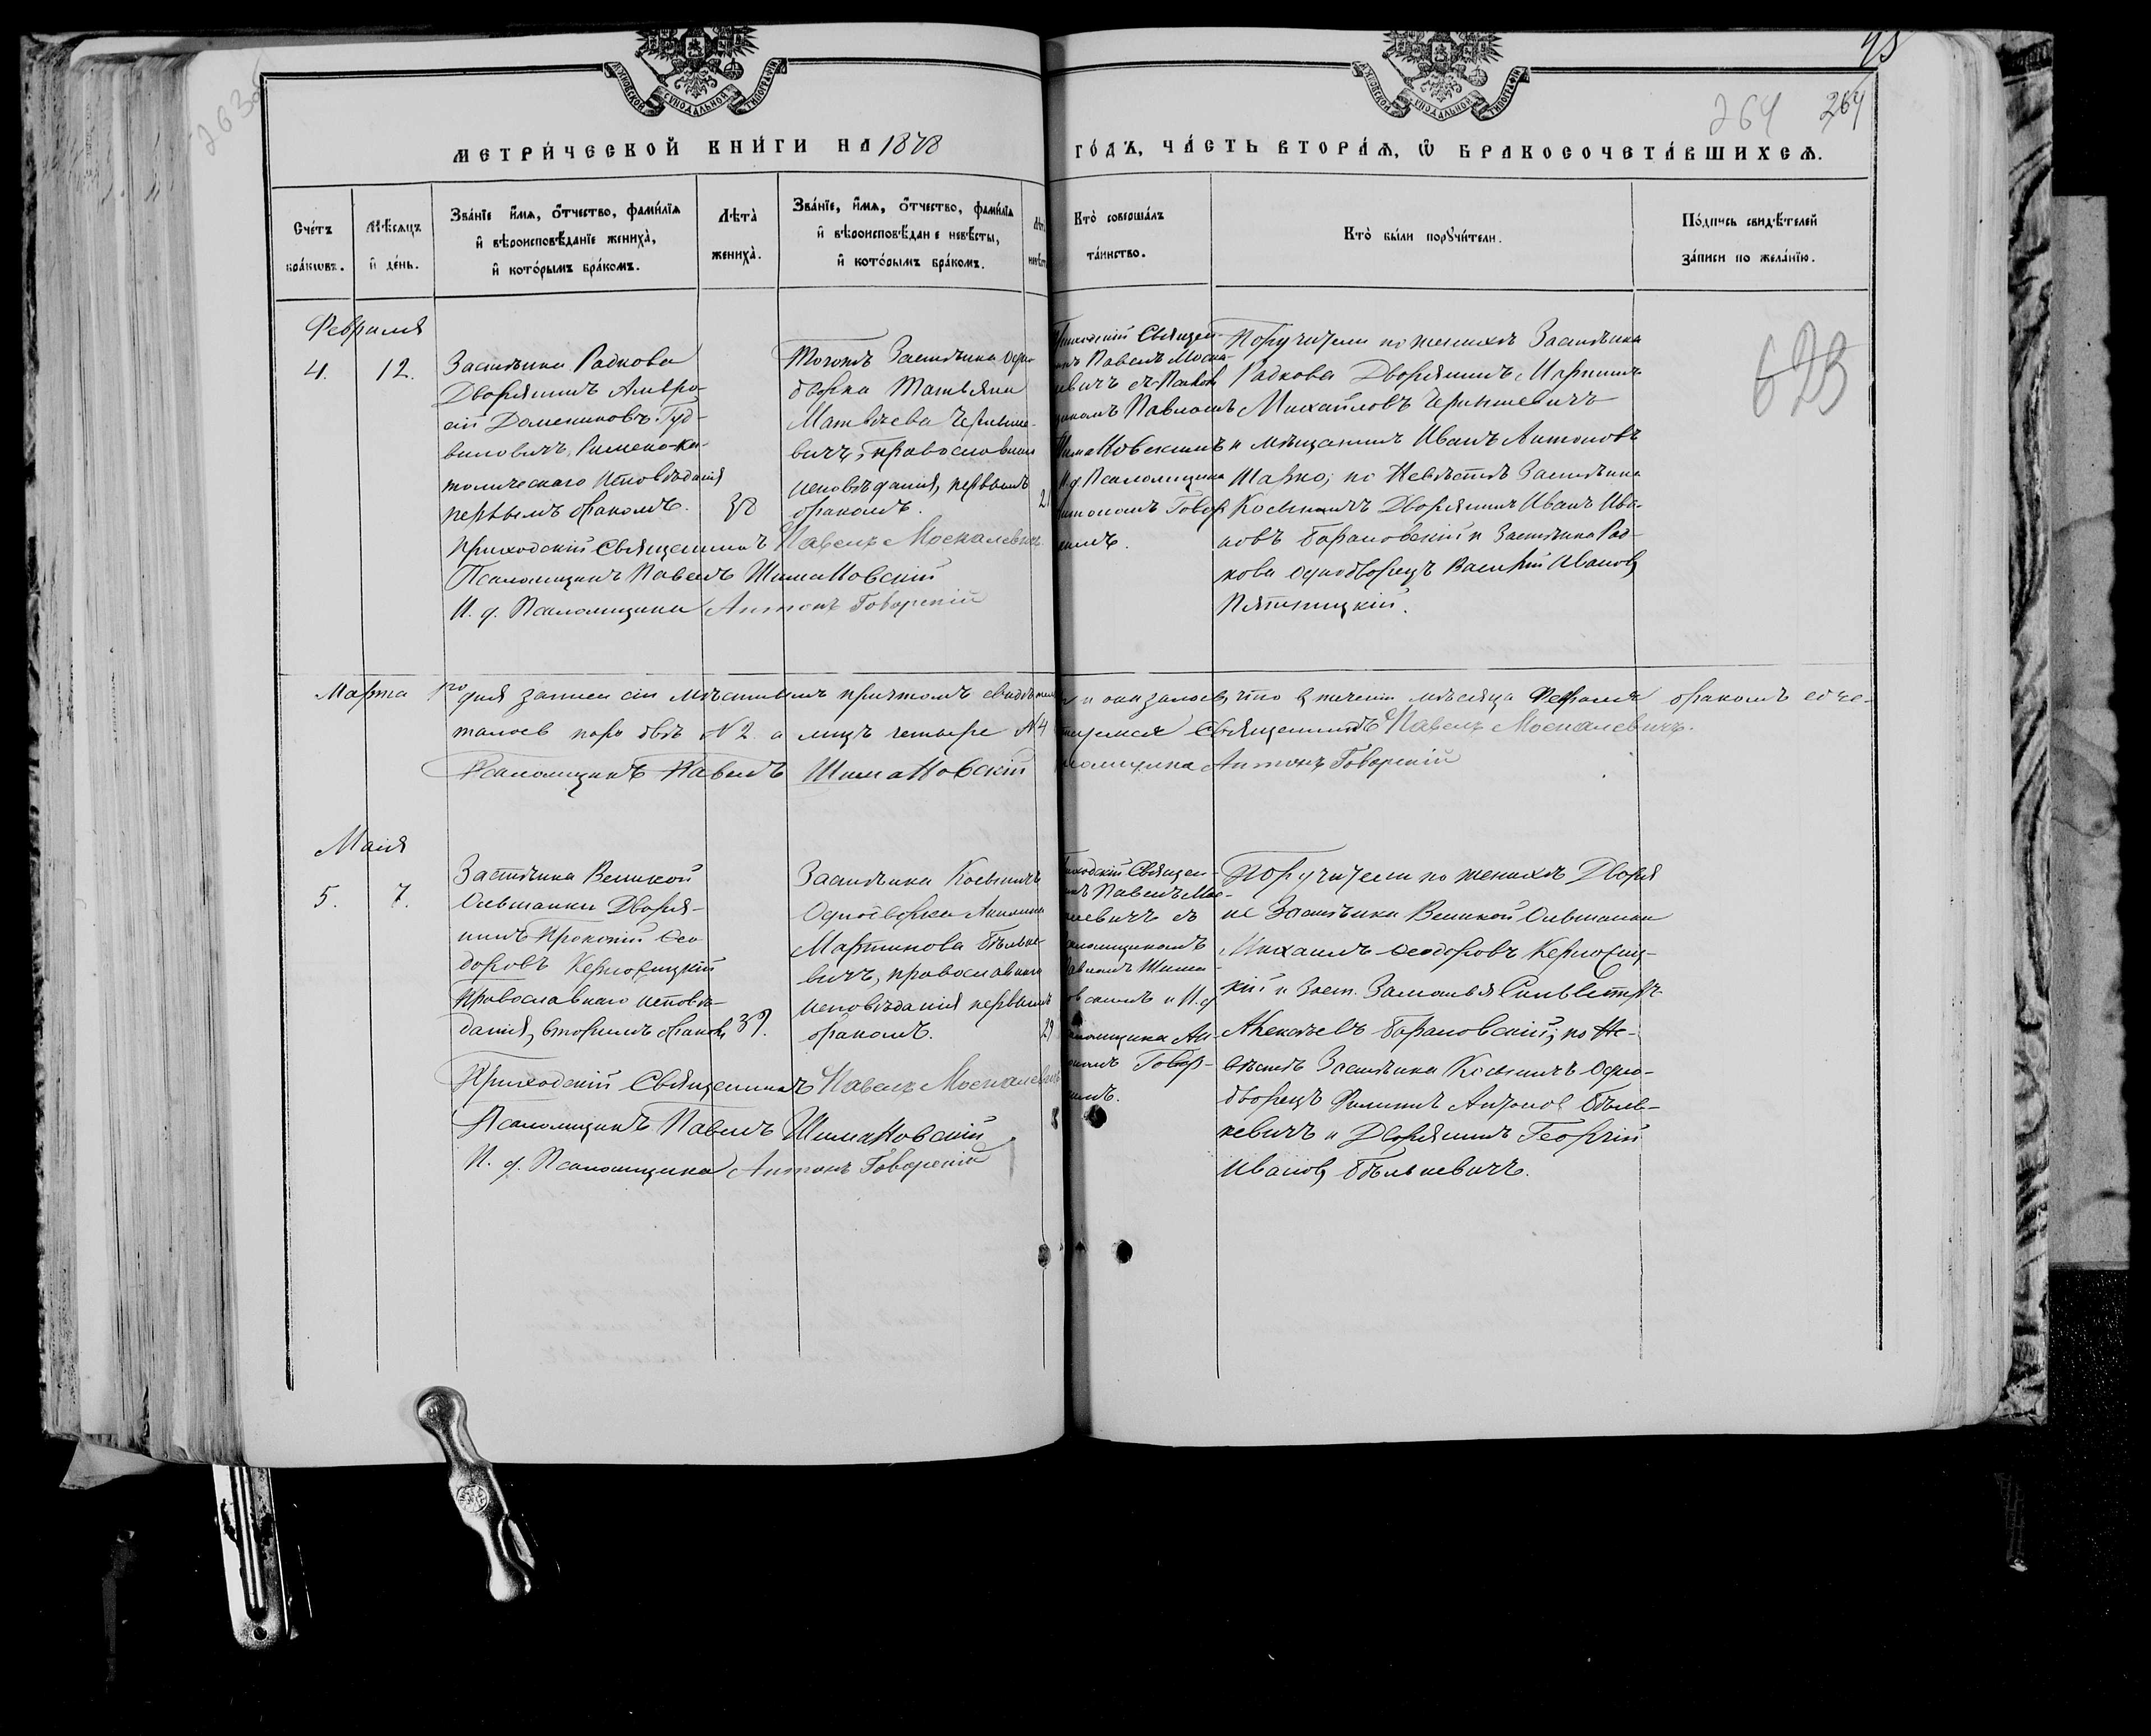 45
264 264
МЕТРИ́ЧЕСКОЙ КНИ́ГИ НА 1878 ГО́ДЪ, ЧА́СТЬ ВТОРА́Ѧ, Ѡ БРАКОСОЧЕТА́ВШИХСѦ.
Сче́тъ бра́кѡвъ.
Мѣ́сяцъ и де́нь.
Зва́нїе и҆́мѧ, о҆́тчество, фами́лїѧ
и҆ вѣроисповѣ́данїе жениха̀,
и҆ кото́рымъ бра́комъ.
Лѣта̀
жениха̀.
Зва́нїе, и҆́мѧ, о҆́тчество, фами́лїѧ
и҆ вѣроисповѣ́данїе невѣ́сты,
и҆ кото́рымъ бра́комъ.
Кто̀ соверша́лъ
та́инство.
Кто̀ бы́ли порꙋчи́тели.
По́дпись свидѣ́телей
за́писи по жела́нїю.
Февраля
4. 12.
Застѣнка Радкова
Дворянинъ Амвро-
сій Домениковъ Гуд-
виловичъ, Римско-ка-
толическаго исповѣданія
первымъ бракомъ.
38
Тогожъ Застѣнка Одно-
дворка Татьяна
Матвѣева Черныше-
вичъ, православнаго
исповѣданія, первымъ
бракомъ.
21
Приходскій Священ-
никъ Павелъ Моска-
левичъ съ Псалом-
щикомъ Павломъ
Шимановскимъ и
И. д. Псаломщика
Антономъ Говор-
скимъ.
Поручители по женихѣ Застѣнка
Радкова Дворянинъ
Михайловъ Чернышевичъ
и мѣщанинъ Иванъ Антоновъ
Шарко; по Невѣстѣ Застѣнка
Косыничъ Дворянинъ Иванъ Ива-
новъ Барановскій и Застѣнка Рад-
кова однодворецъ Василій Ивановъ
Пятницкій.
623
Приходскій Священникъ Павелъ Москалевичъ
Псаломщикъ Павелъ Шимановскій
И. д. Псаломщика Антонъ Говорскій
Марта 1го дня записи сіи мѣстнымъ причтомъ свидѣтельствованы и оказалось, что въ теченіи мѣсяца Февраля бракомъ соче-
талось паръ двѣ №2 а лицъ четыре №4 Священникъ Павелъ Москалевичъ.
Псаломщикъ Павелъ Шимановскій Псаломщика Антонъ Говорскій
Маія
5. 7.
Застѣнка Великой
Ольшанки Дворя-
нинъ Прокопій Ѳео-
доровъ Керножицкій
Православнаго исповѣ-
данія, вторымъ бракомъ
39.
Застѣнка Косыничъ
Однодворка
Мартинова Бѣльке-
вичъ, православнаго
исповѣданія первымъ
бракомъ.
29
Приходскій Священ-
никъ Павелъ Мос-
калевичъ съ
Псаломщикомъ
Павломъ Шима-
новскимъ и И. д.
Псаломщика Ан-
тономъ Говор-
скимъ.
Поручители по женихѣ Дворя
не Застѣнка Великой Ольшанки
Михаилъ Ѳеодоровъ Керножиц-
кій и Заст. Замостья Сильвестръ
Алексѣевъ Барановскій; по Не-
вѣстѣ Застѣнка Косыничъ Одно-
дворецъ Филипъ Антоновъ Бѣль-
кевичъ и Дворянинъ Георгій
Ивановъ Бѣлькевичъ.
Приходскій Священникъ Павелъ Москалевичъ
Псаломщикъ Павелъ Шимановскій
И. д. Псаломщика Антонъ Говорскій